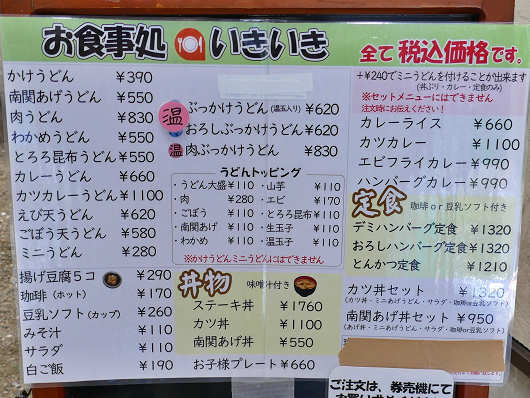 お食事処 いきいき
全て税込価格です。
かけうどん ¥390
南関あげうどん ¥550
肉うどん ¥830
わかめうどん ¥550
とろろ昆布うどん ¥550
カレーうどん ¥660
カツカレーうどん ¥1100
えび天うどん ¥620
ごぼう天うどん ¥580
ミニうどん ¥280
揚げ豆腐5コ ¥290
珈琲(ホット) ¥170
豆乳ソフト(カップ) ¥260
みそ汁 ¥110
サラダ ¥110
白ご飯 ¥190
温 ぶっかけうどん(温玉入り) ¥620
おろしぶっかけうどん ¥620
温 肉ぶっかけうどん ¥830
うどんトッピング
・うどん大盛 ¥110 ・山芋 ¥110
・肉 ¥280 ・エビ ¥170
・ごぼう ¥110 ・とろろ昆布 ¥110
・南関あげ ¥110 ・生玉子 ¥110
・わかめ ¥110 ・温玉子 ¥110
※かけうどんミニうどんにはできません
丼物 味噌汁付き
ステーキ丼 ¥1760
カツ丼 ¥1100
南関あげ丼 ¥550
お子様プレート ¥660
+¥240でミニうどんを付けることが出来ます
(丼ぶり・カレー・定食のみ)
※セットメニューにはできません
注文時にお伝えください!
カレーライス ¥660
カツカレー ¥1100
エビフライカレー ¥990
ハンバーグカレー ¥990
定食 珈琲or豆乳ソフト付き
デミハンバーグ定食 ¥1320
おろしハンバーグ定食 ¥1320
とんかつ定食 ¥1210
カツ丼セット ¥1320
(カツ丼・ミニあげうどん・サラダ・珈琲or豆乳ソフト)
南関あげ丼セット ¥950
(あげ丼・ミニあげうどん・サラダ・珈琲or豆乳ソフト)
ご注文は、券売機にて